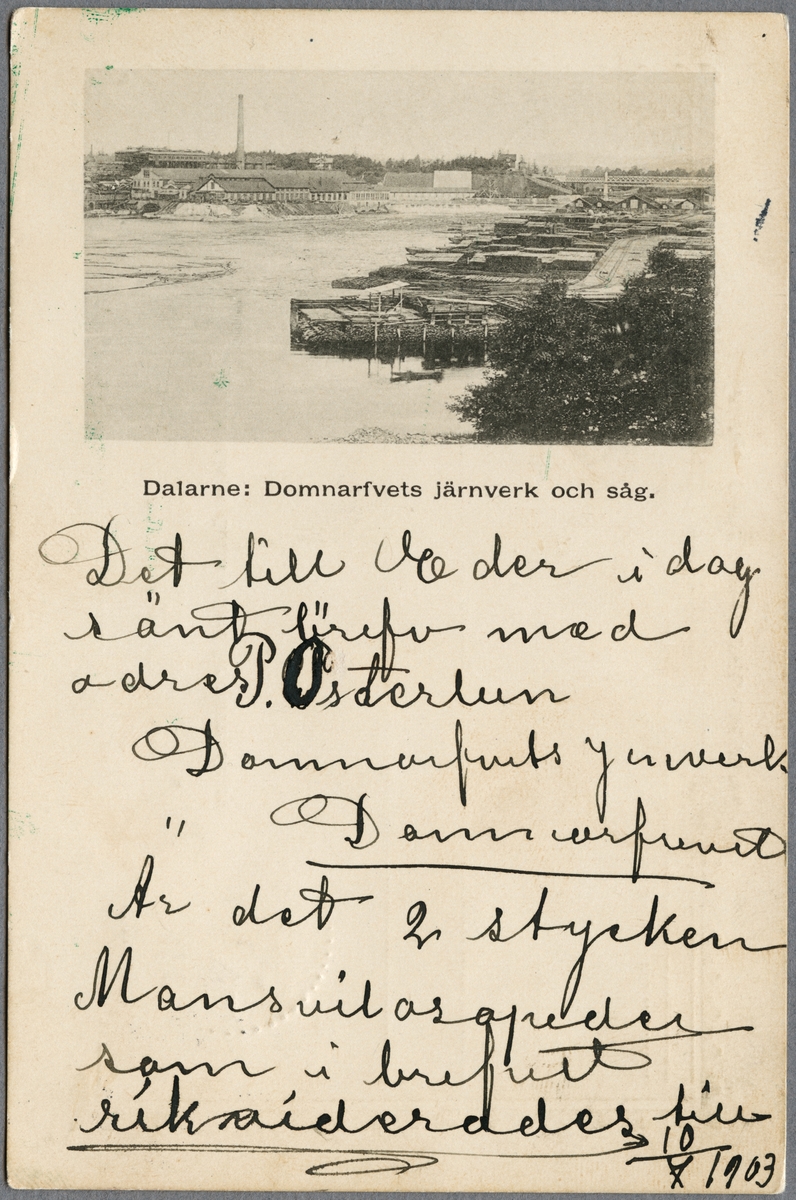 Dalarne: Domnarfvets järnverk och såg.
Det till Eder i dag
sänt brefv med
adres P. Österlun
Domnarfvets Jenverk
" Domnarfvvet
Är det 2 stycken
Mansvilosopeder
som i brefvet
rikviderades till
10/X 1903